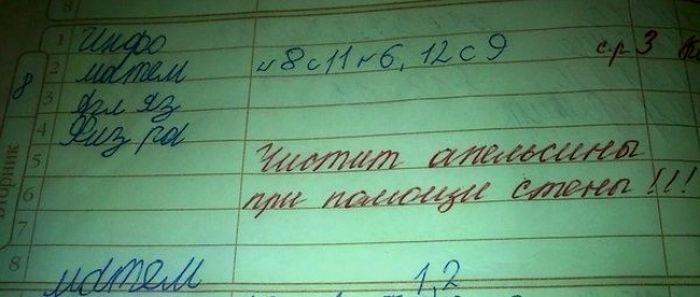 8
1 Инфо
2 матем н 8 с 11 н 6, 12 с 9 с.р 3
3 Агл яз
4 Физ ра
5 Чистит апельсины
6 при помощи стены!!!
7
8 матем 1,2
8
вторник